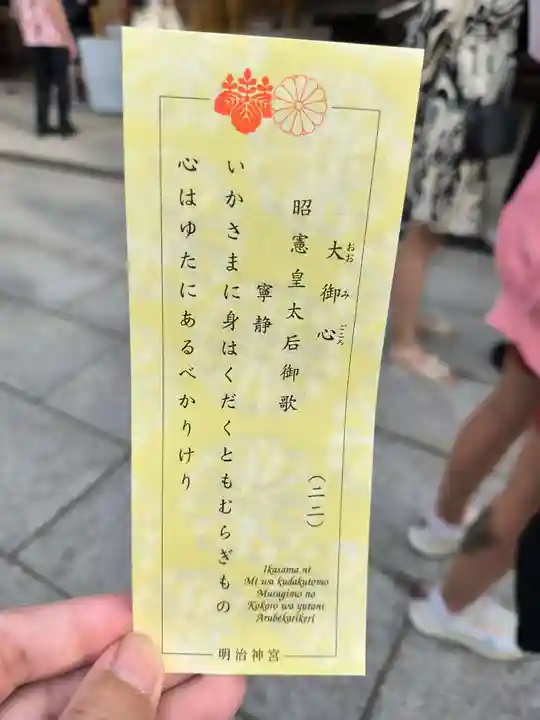 大御心
おおみごころ
昭憲皇太后御歌
(二二)
寧静
いかさまに身はくだくともむらぎもの
心はゆたにあるべかりけり
Ikasama ni
Mi wa kudakutomo
Muragimo no
Kokoro wa yutani
Arubekarikeri
明治神宮